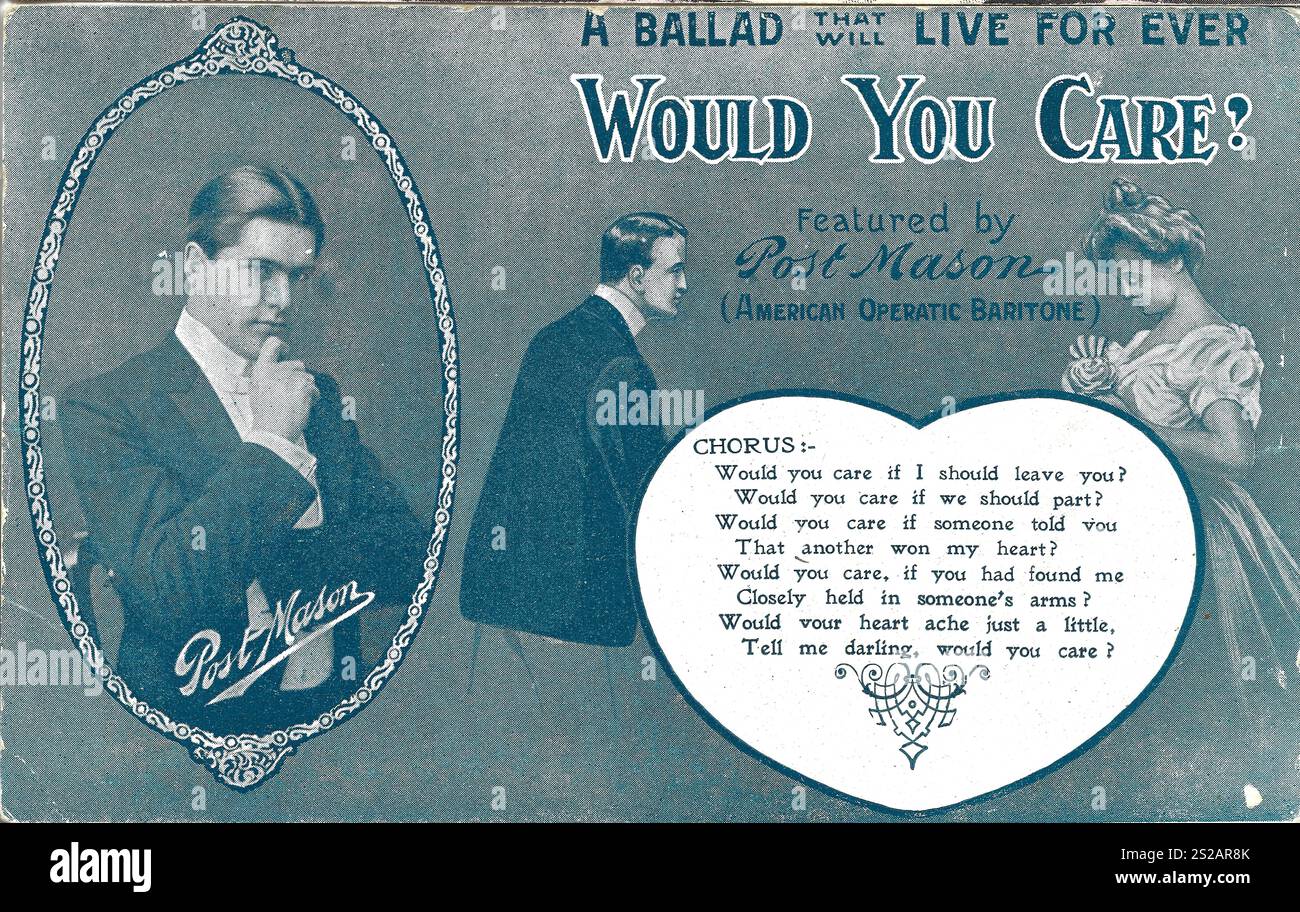 A BALLAD THAT WILL LIVE FOR EVER
WOULD YOU CARE?
Featured by
Post Mason
(AMERICAN OPERATIC BARITONE)
Post Mason
CHORUS:-
Would you care if I should leave you?
Would you care if we should part?
Would you care if someone told you
That another won my heart?
Would you care, if you had found me
Closely held in someone's arms?
Would your heart ache just a little,
Tell me darling, would you care?
alamy
alamy
Image ID: 2S2AR8K
www.alamy.com